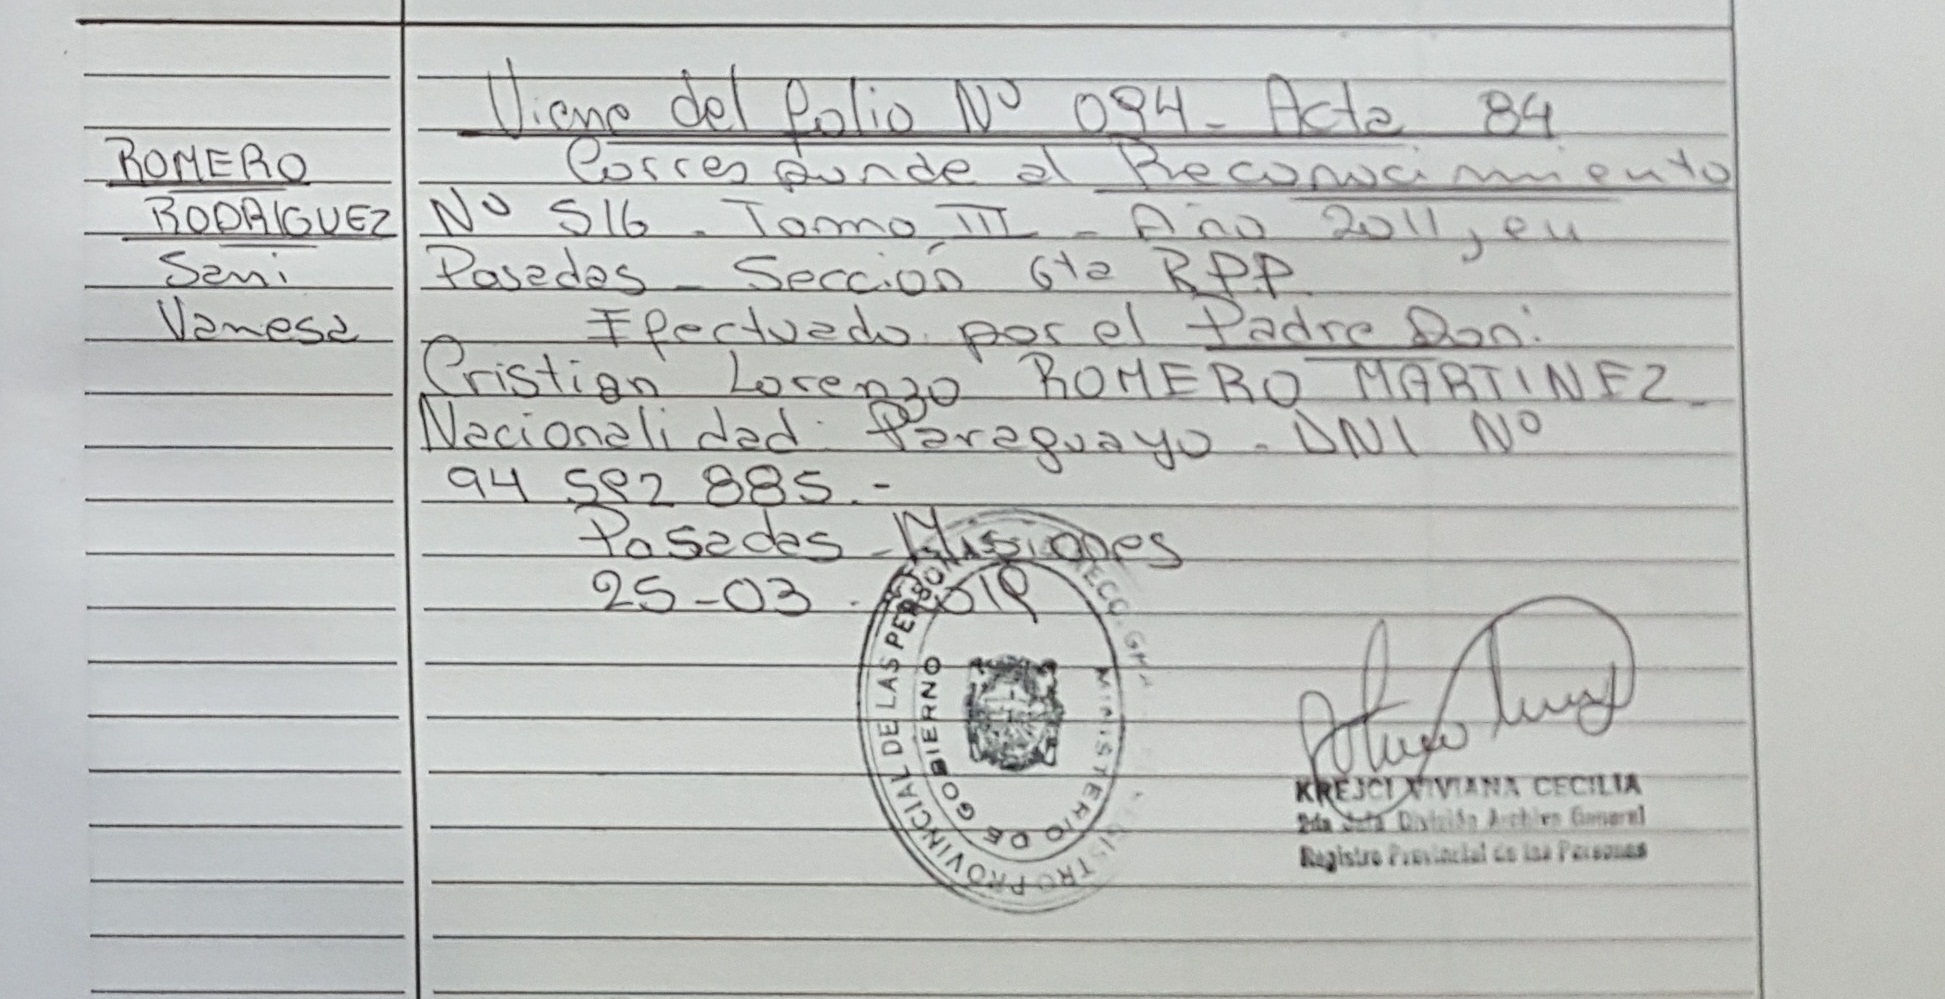 Viene del folio Nº 094 - Acta 84
ROMERO
RODRIGUEZ
Sani
Vanesa
Corresponde al Reconocimiento
Nº 516 - Tomo III - Año 2011, en
Posadas - Sección 6ta RPP.
Efectuado por el Padre Don:
Cristian Lorenzo ROMERO MARTINEZ -
Nacionalidad: Paraguayo - DNI Nº
94 592 885.-
Posadas - Misiones
25-03 -
REGISTRO PROVINCIAL DE LAS PERSONAS
MINISTERIO DE GOBIERNO
KREJCI VIVIANA CECILIA
2da Jefa División Archivo General
Registro Provincial de las Personas